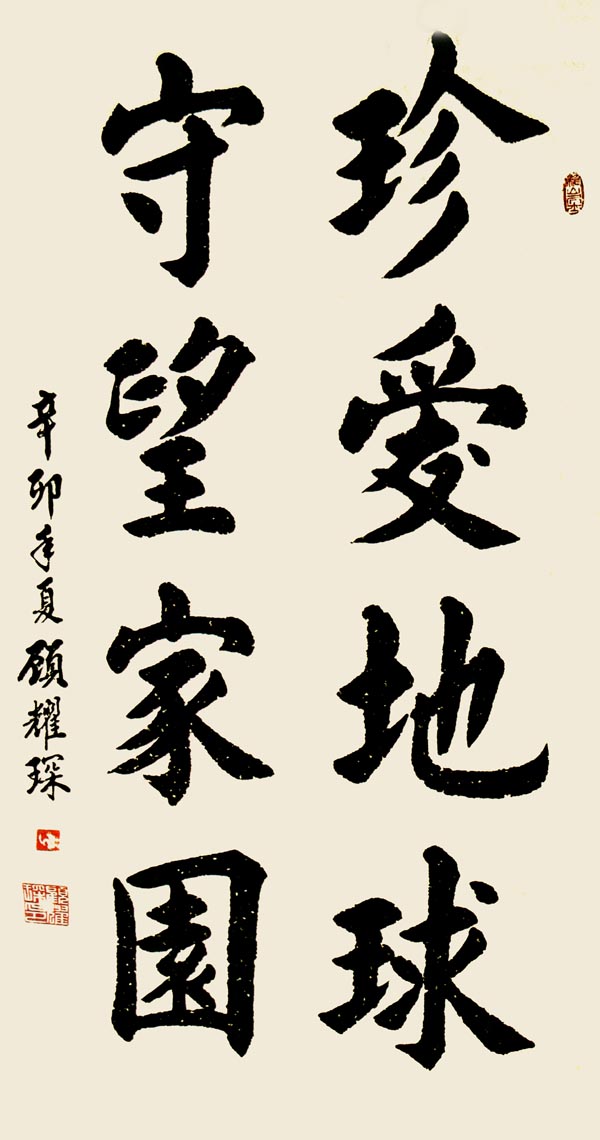 珍愛地球
守望家園
辛卯年夏顧耀琛